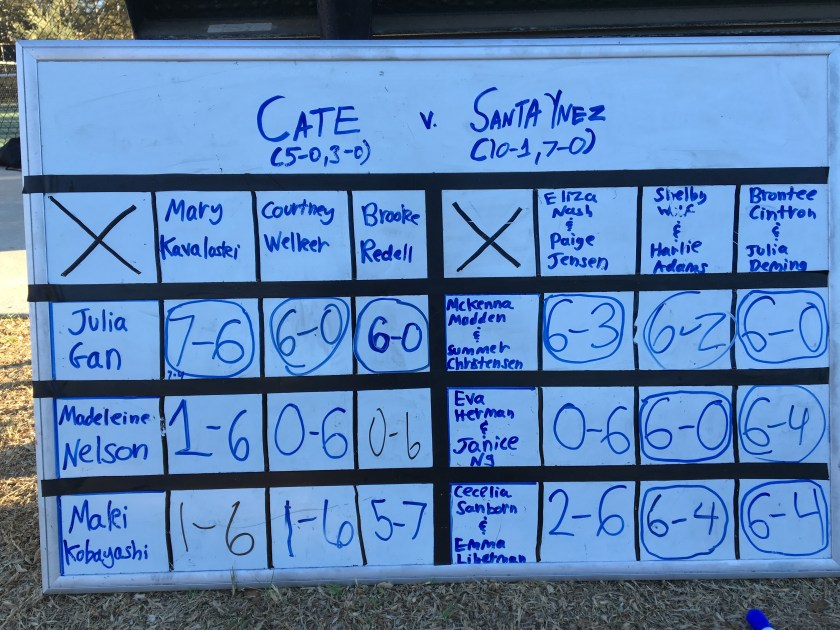 CATE v. SANTA YNEZ
(5-0,3-0) (10-1,7-0)
Mary Kavaloski
Courtney Welker
Brooke Redell
Eliza Nash & Paige Jensen
Shelby Wilf & Harlie Adams
Brontee Cintron & Julia Deming
Julia Gan
7-6
7-4
6-0
6-0
Mckenna Madden & Summer Christensen
6-3
6-2
6-0
Madeleine Nelson
1-6
0-6
0-6
Eva Herman & Janice Ng
0-6
6-0
6-4
Kobayashi
1-6
1-6
5-7
Cecelia Sanborn & Emma Liberman
2-6
6-4
6-4